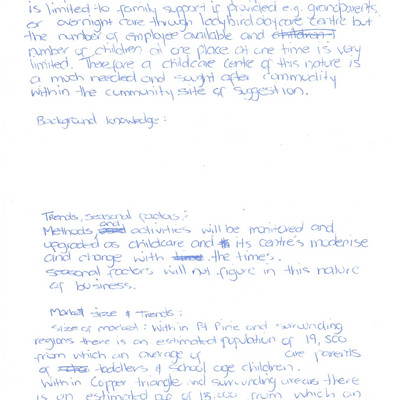 is limited to family support is provided e.g. grandparents
or overnight care through ladybird daycare centre but
the number of employee available and children
number of children at one place at one time is very
limited. Therefore a childcare centre of this nature is
a much needed and sought after commodity
within the community site of suggestion.
Background knowledge:
Trends, seasonal factors:
Methods, and activities will be monitored and
upgraded as childcare and its centre's modernise
and change with the times.
seasonal factors will not figure in this nature
of business.
Market size & Trends:
Size of market: Within Pt Pirie and surrounding
regions there is an estimated population of 19,500
from which an average of are parents
of toddlers & school age children.
Within Copper triangle and surrounding areas there
is an estimated pop of 13,000 from which an